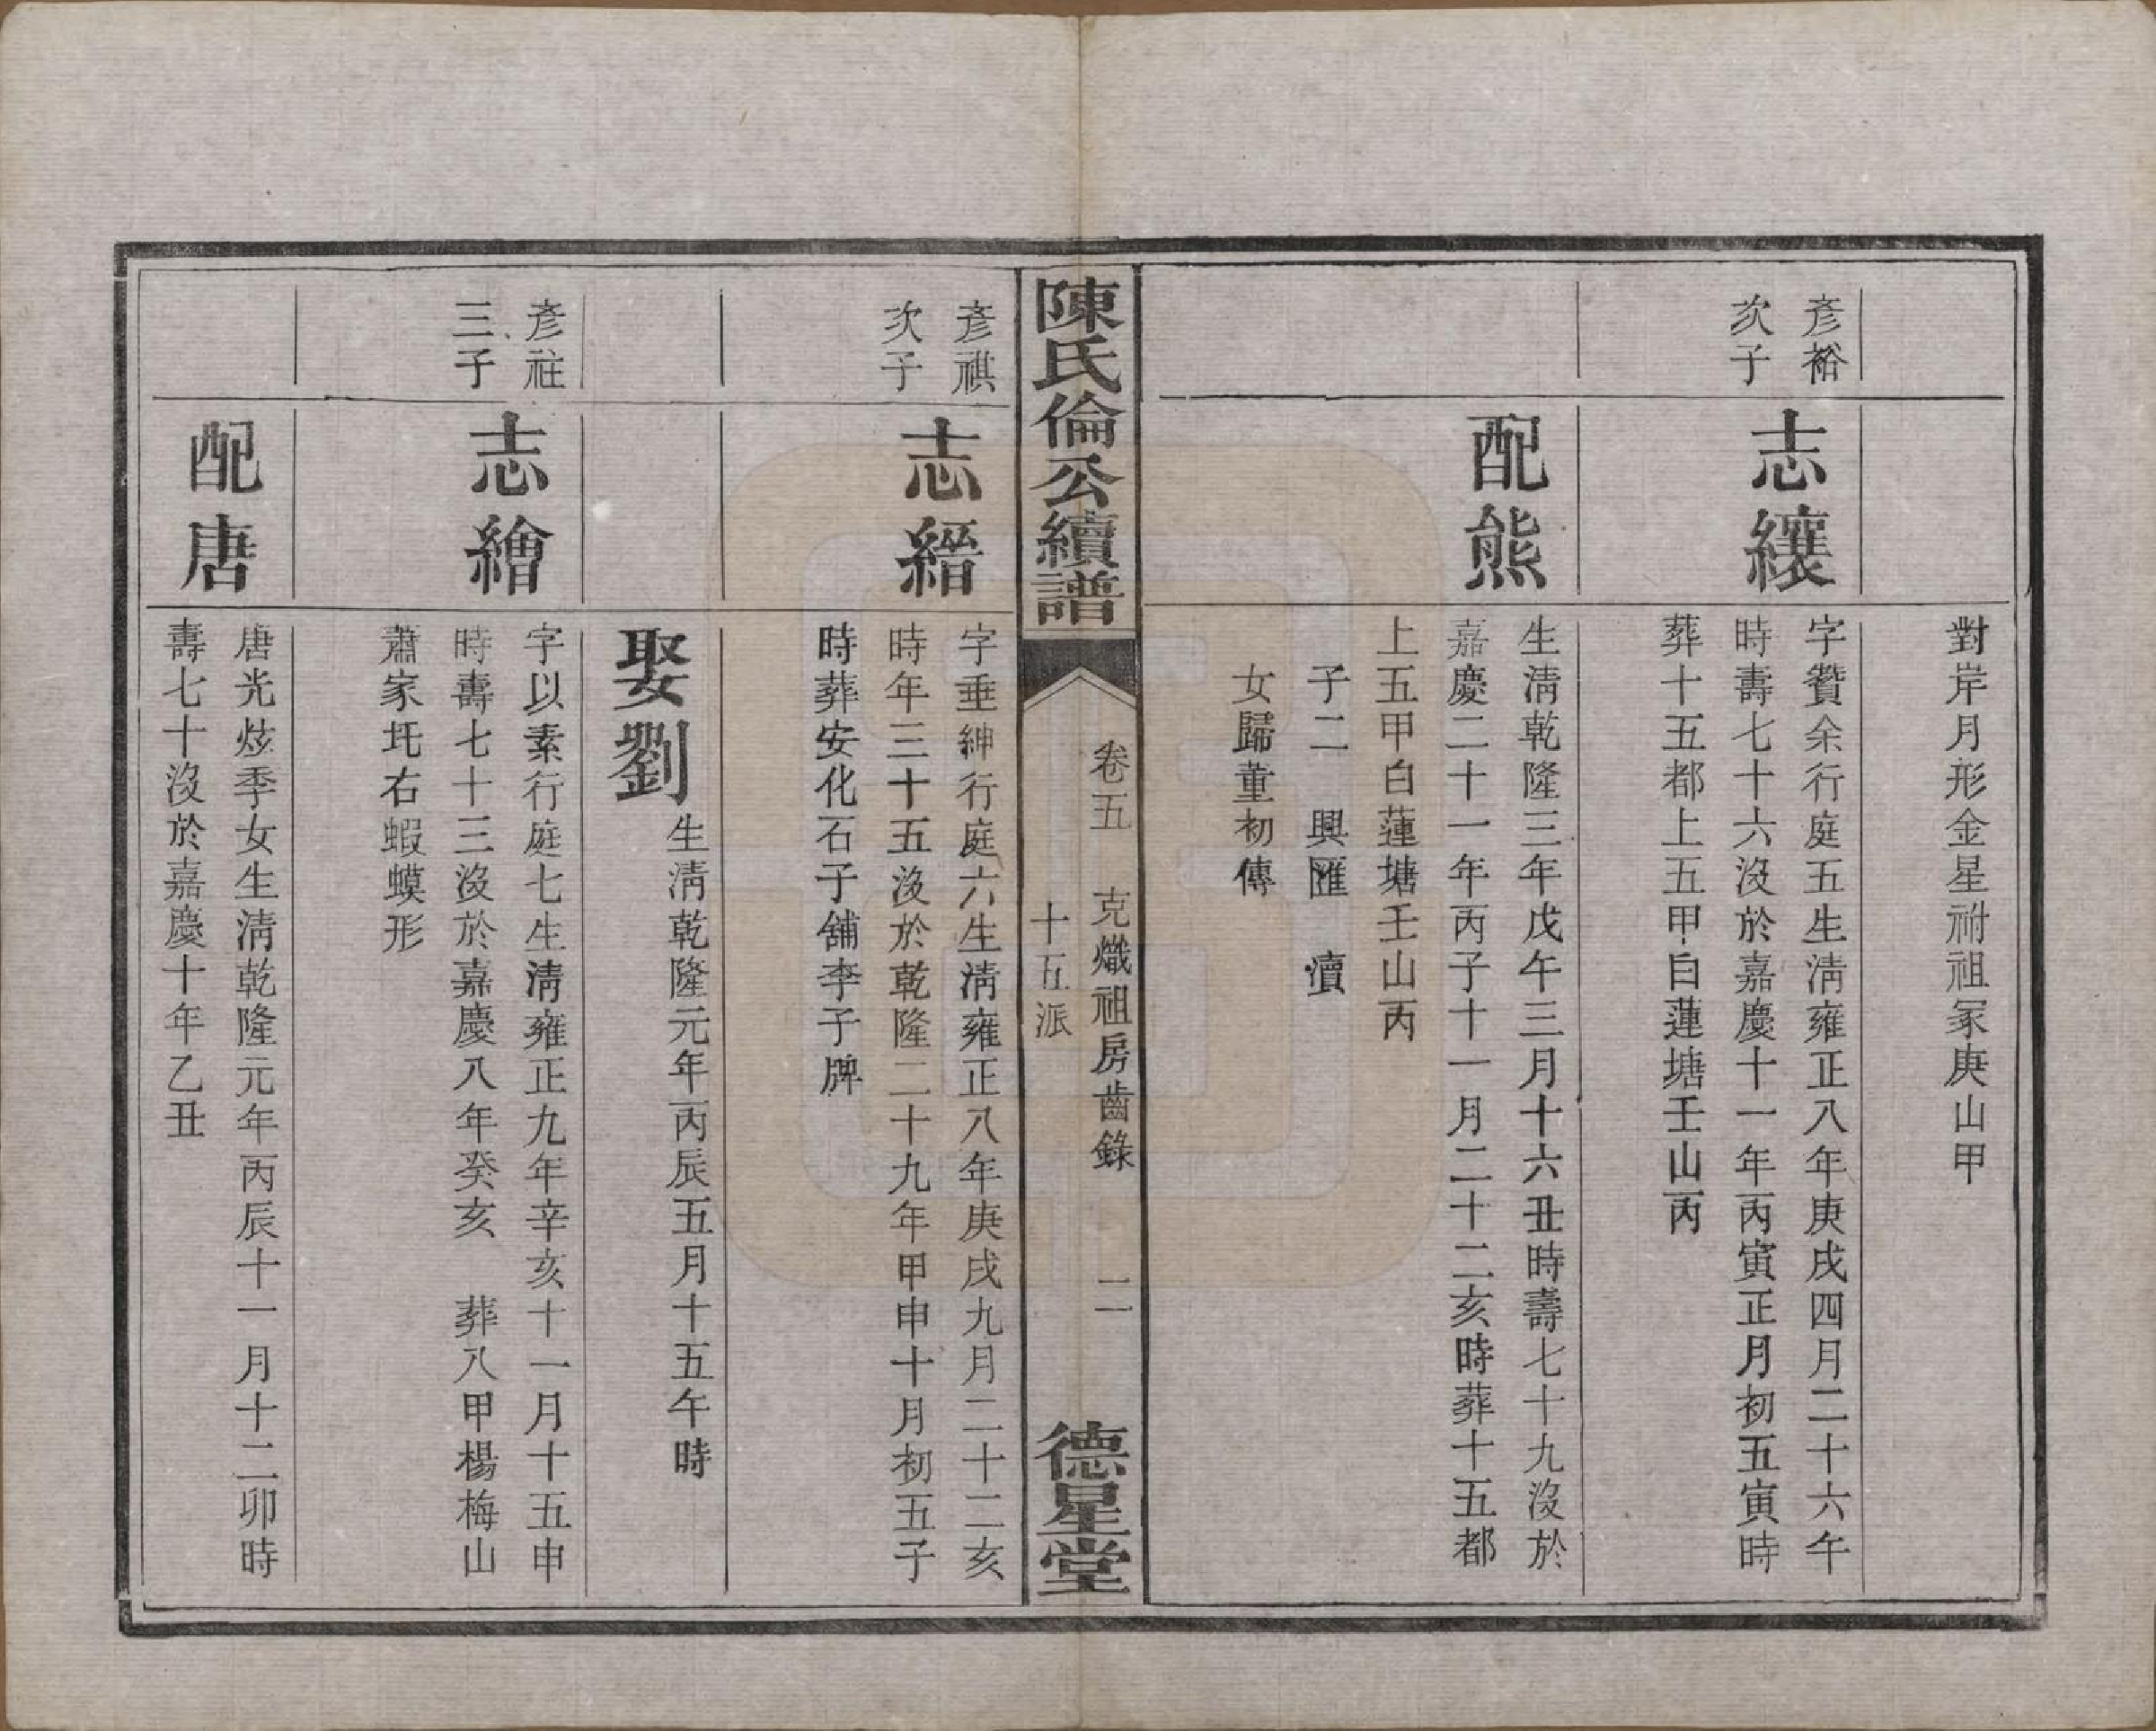 對岸月形金星祔祖冢庚山甲
彥裕
次子
志纕
字贊余行庭五生淸雍正八年庚戌四月二十六午
時壽七十六沒於嘉慶十一年丙寅正月初五寅時
葬十五都上五甲白蓮塘壬山丙
配熊
生淸乾隆三年戊午三月十六丑時壽七十九沒於
嘉慶二十一年丙子十一月二十二亥時葬十五都
上五甲白蓮塘壬山丙
子二 興匯 瀆
女歸董初傳
陳氏倫公續譜
卷五 克熾祖房齒錄 二
十五派
德星堂
彥祺
次子
志縉
字垂紳行庭六生淸雍正八年庚戌九月二十二亥
時年三十五沒於乾隆二十九年甲申十月初五子
時葬安化石子舖李子牌
娶劉
生淸乾隆元年丙辰五月十五午時
彥祉
三子
志繪
字以素行庭七生淸雍正九年辛亥十一月十五申
時壽七十三沒於嘉慶八年癸亥 葬八甲楊梅山
蕭家坉右蝦蟆形
配唐
唐光炫季女生淸乾隆元年丙辰十一月十二卯時
壽七十沒於嘉慶十年乙丑